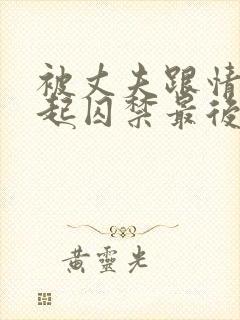 被丈夫跟情
起囚禁最後
黄靈光